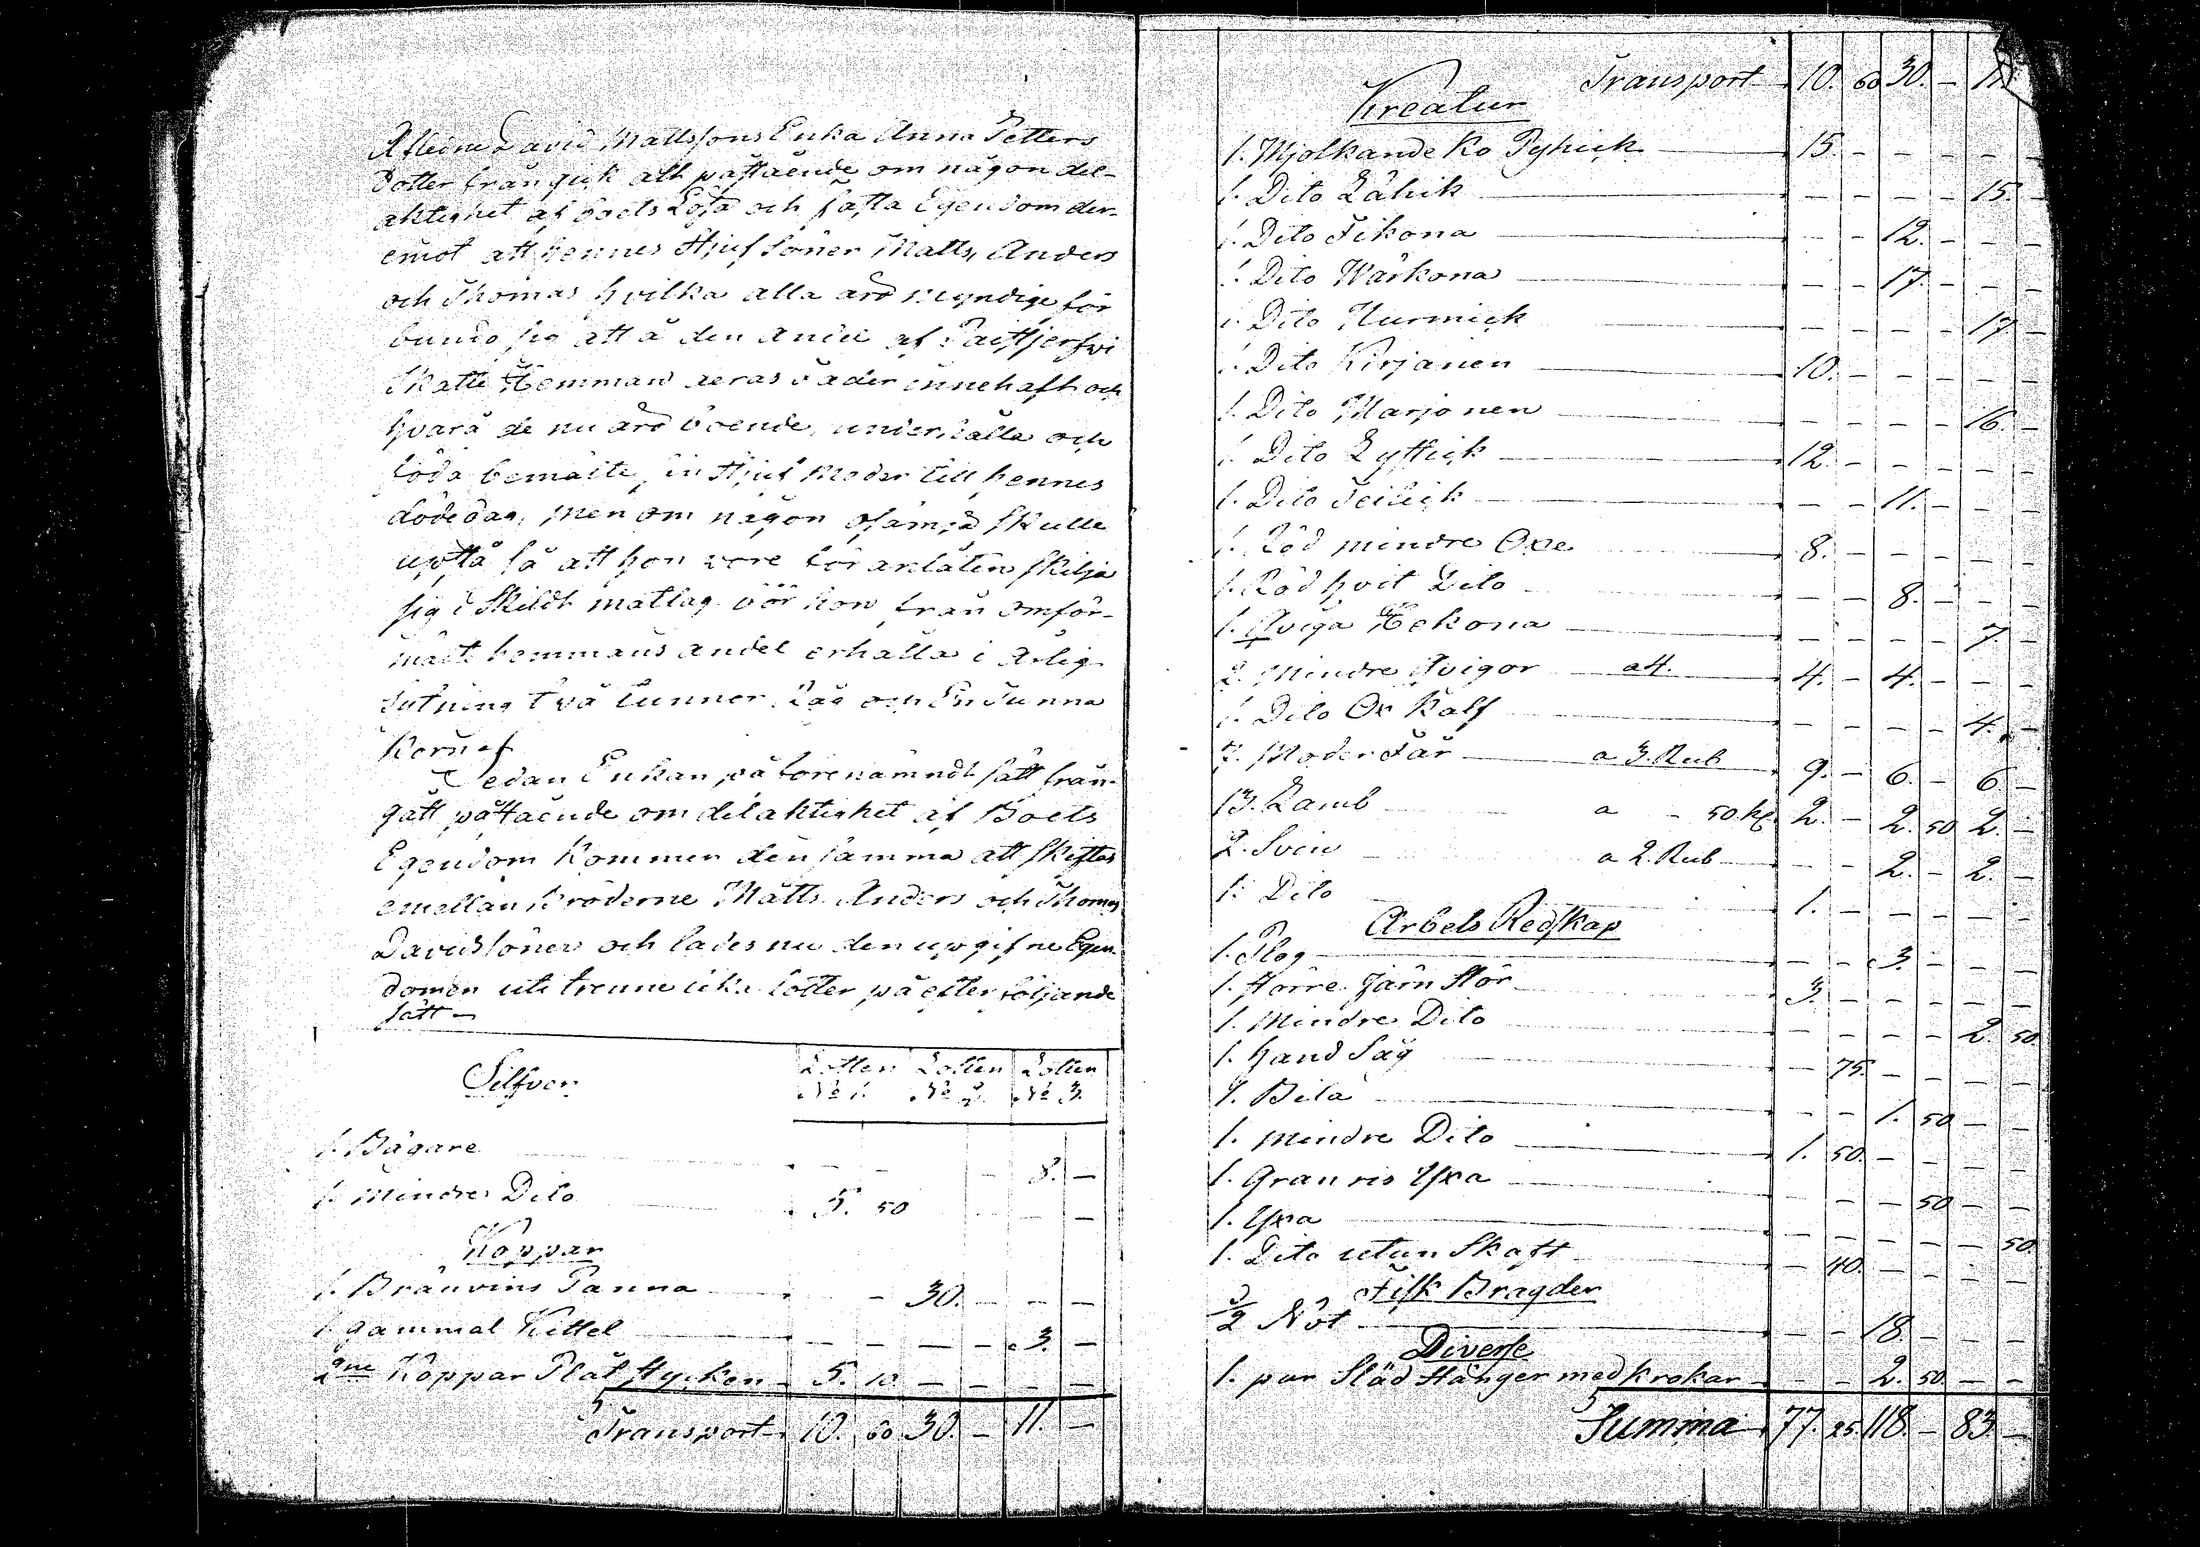 Afledne David Mattssons Enka Anna Petters
dotter från gick allt påstående om någon del-
aktighet af boets Lösa och fasta Egendom der-
emot att hennes Stjuf Söner Matts, Anders
och Thomas hvilka alla äro myndige för
bundo sig att å den andel af
Skatte Hemman deras fader innehaft och
hvarå de nu äro boende, underhålla och
föda bemälte sin Stjuf Moder till hennes
dödedag, men om någon osämja skulle
upstå så att hon vore föranlåten skilja
sig i Skildt matlag bör hon från omför-
mält hemmans andel erhålla i årlig
två tunnor Råg och En Tunna
Korn af
Sedan Enkan på förenämndt sätt från-
gått påstående om delaktighet af Boets
Egendom kommer den samma att skiftas
emellan Bröderne Matts Anders och Thomas
Davidssöner och lades nu den upgifne Egen-
domen uti trenne lika lotter på efter följande
sätt —
Silfver Lotten No 1. Lotten No 2. Lotten No 3.
1. Bägare — — — 8. —
1. Mindre Dito 5. 50 —
Koppar
1. Bränvins Panna — 30. — — —
1. gammal Kittel — — — — 3. —
2ne Koppar Plåt Stycken 5. 10 — — — —
Transport 10. 60 30. — 11. —
Transport 10. 60 30. — 11.
Kreatur
1. Mjolkande Ko Pyhick 15. — — — — —
1. Dito Lähik — — — — 15. —
1. Dito Tikona — — 12. — — —
1. Dito Wärkona — — 17. — — —
1. Dito Hurmick — — — — 17. —
1. Dito Kirjanen 10. — — — — —
1. Dito Marjonen — — — — 16. —
1. Dito Lystick 12. — — — — —
1. Dito — — 11. — — —
1. Röd mindre Oxe 8. — — — — —
1. Röd hvit Dito — — 8. — — —
1. Qviga Hekona — — — — 7. —
2. Mindre Qvigor a 4. 4. — 4. — — —
1. Dito Ox Kalf — — — — 4. —
7. Moder Får a 3. Rub 9. — 6. — 6. —
13. Lamb a — 50. k 2. — 2. 50 2. —
2. Svin a 2. Rub — — 2. — 2. —
1. Dito 1. — — — — —
Arbets Redskap
1. Plog — — 3. — — —
1. större Järn Stör 3. — — — — —
1. Mindre Dito — — — — 2. 50.
1. hand Såg — 75. — — — —
1. Bila — — 1. 50 — —
1. mindre Dito 1. 50. — — — —
1. Gran ris Yxa — — — 50 — —
1. Yxa — — — — — 50.
1. Dito utan Skaft — 40. — — — —
Fisk Bragder
Not — — 18. — — —
Diverse
1. par Släd Stänger med krokar — — 2. 50 — —
Summa 77. 25. 118. — 83. —